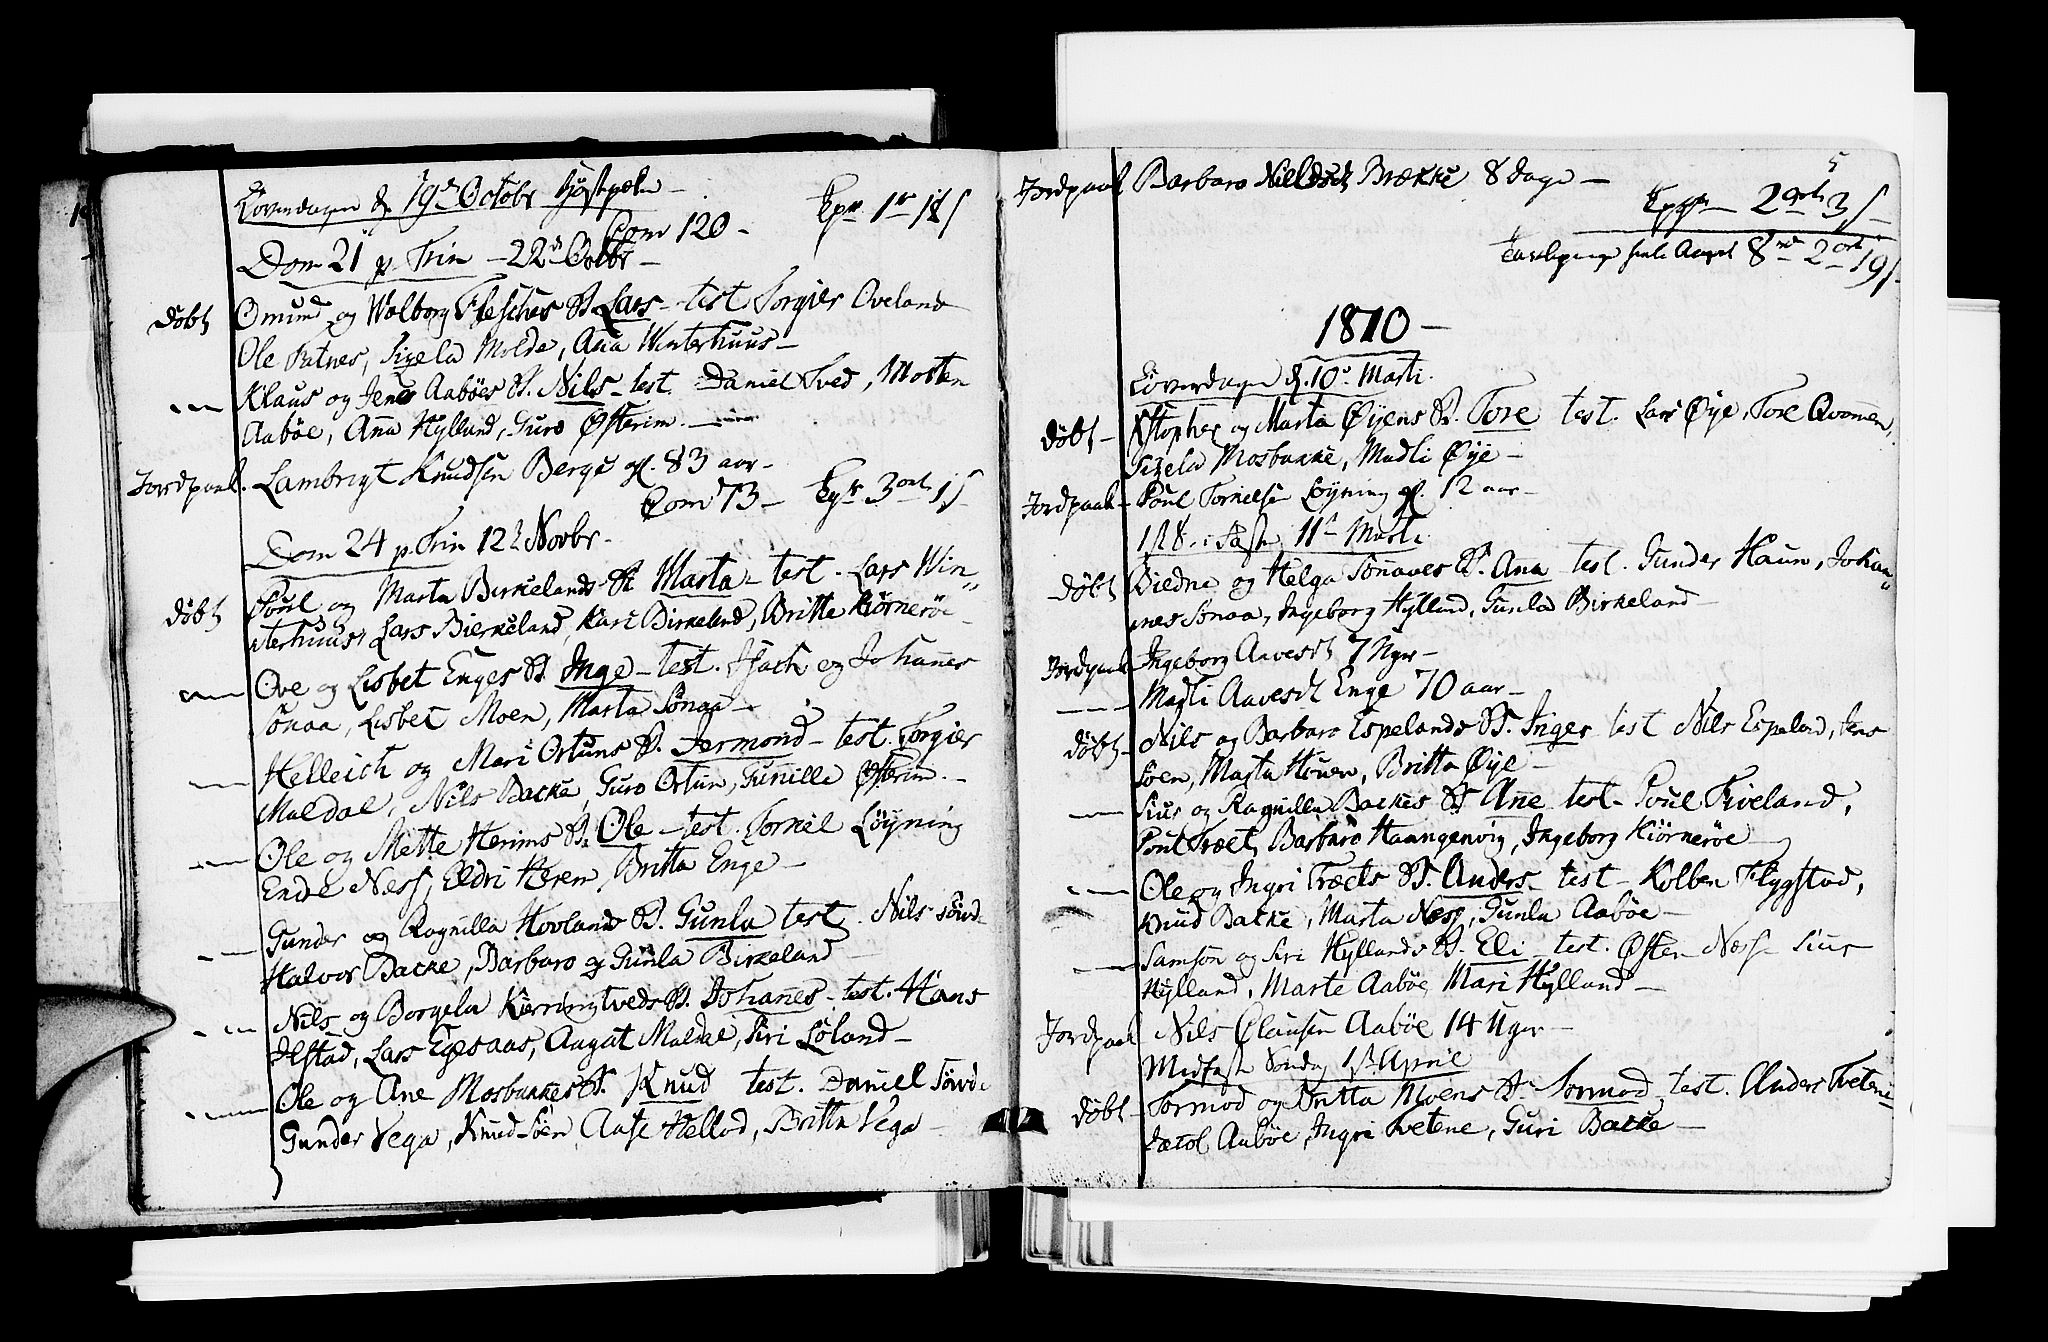 Löverdagen d. 19de Octobr
Com 120 -
Dom 21 p. Trin - 22d Octbr -
döbt Omund og Walborg Flesches B. Lars - test Torgier Oveland
Ole Ratnes, Sizela Molde, Ana Winterhuus -
Klaus og Jens Aaböes B. Nils - test. Daniel Tved, Morten
Aaböe, Ana Hylland, Guro Østerim. -
Jordpaak. Lambrigt Knudsen Berge gl. 83 aar -
Com 73 - 3 ort 1 s
Dom 24 p. Trin 12 Novbr -
döbt Poul og Marta Birkelands B. Marta - test. Lars Win„
terhuus Lars Bierkeland, Kari Birkeland, Britte Kiörneröe -
Ove og Lisbet Enges B. Inge - test. Isach og Johanes
Sönaa, Lisbet Moen, Marta Sönaa -
Helleich og Mari Ortuns B. Jermond - test. Torgier
Maldal, Nils Backe, Guro Ortun, Gunille Østerim. -
Ole og Mette Herims B. Ole - test. Tornel Löyning
Endre Ness, Eldri Herem, Britta Enge -
Gunder og Ragnilla Hovlands B. Gunla test. Nils
Halvor Backe, Barbaro og Gunla Birkeland -
Nils og Borgela Kierringtveds B. Johanes - test. Hans
Ilstad, Lars Egesaas, Aagat Maldal, Siri Löland -
Ole og Ane Mosbakkes B. Knud test. Daniel
Gunder Vega, Knud Söen, Aase Hellod, Britta Vega -
5
Jordpaak Barbaro Nielsd Brække 8 dage -
2 ort 3 s -
8 2 ort 19 s
1810 -
Löverdagen d. 10 Marti.
döbt - Kstopher og Marta Øyens B. Tore test. Lars Øye, Tore Qvomen,
Sizela Mosbakke, Madli Øye -
Jordpaak - Poul Tornelsen Löyning gl. 12 aar -
1ste S. i Faste 11te Marti
döbt Biedne og Helga Sönaaes B. Ana - test. Gunder Haun, Johan„
nes Sönaa, Ingeborg Hylland, Gunla Birkeland -
Jordpaak Ingeborg Aavesd 7 Uger -
Madli Aavesd Enge 70 aar -
döbt - Nils og Barbaro Espelands B. Inges test Nils Espeland, Jens
Söen, Marta Houen, Britta Øye -
Siur og Ragnilla Backes B. Ane test - Poul Fiveland,
Poul Træet, Barbaro Haangenvig, Ingeborg Kiörneröe -
Ole og Ingri Træets B. Anders - test - Kolben Flygstad,
Knud Backe, Marta Ness, Gunla Aaböe -
Samson og Siri Hyllands B. Eli - test. Østen Ness Siur
Hylland, Marte Aaböe Mari Hylland -
Jordpaak Nils Clausen Aaböe 14 Uger -
Midfaste Söndag 1ste April
döbt - Tormod og Britta Moens B. Tormod - test. Anders Tvetene
Jacob Aaböe, Ingri Tvetene, Guri Backe -